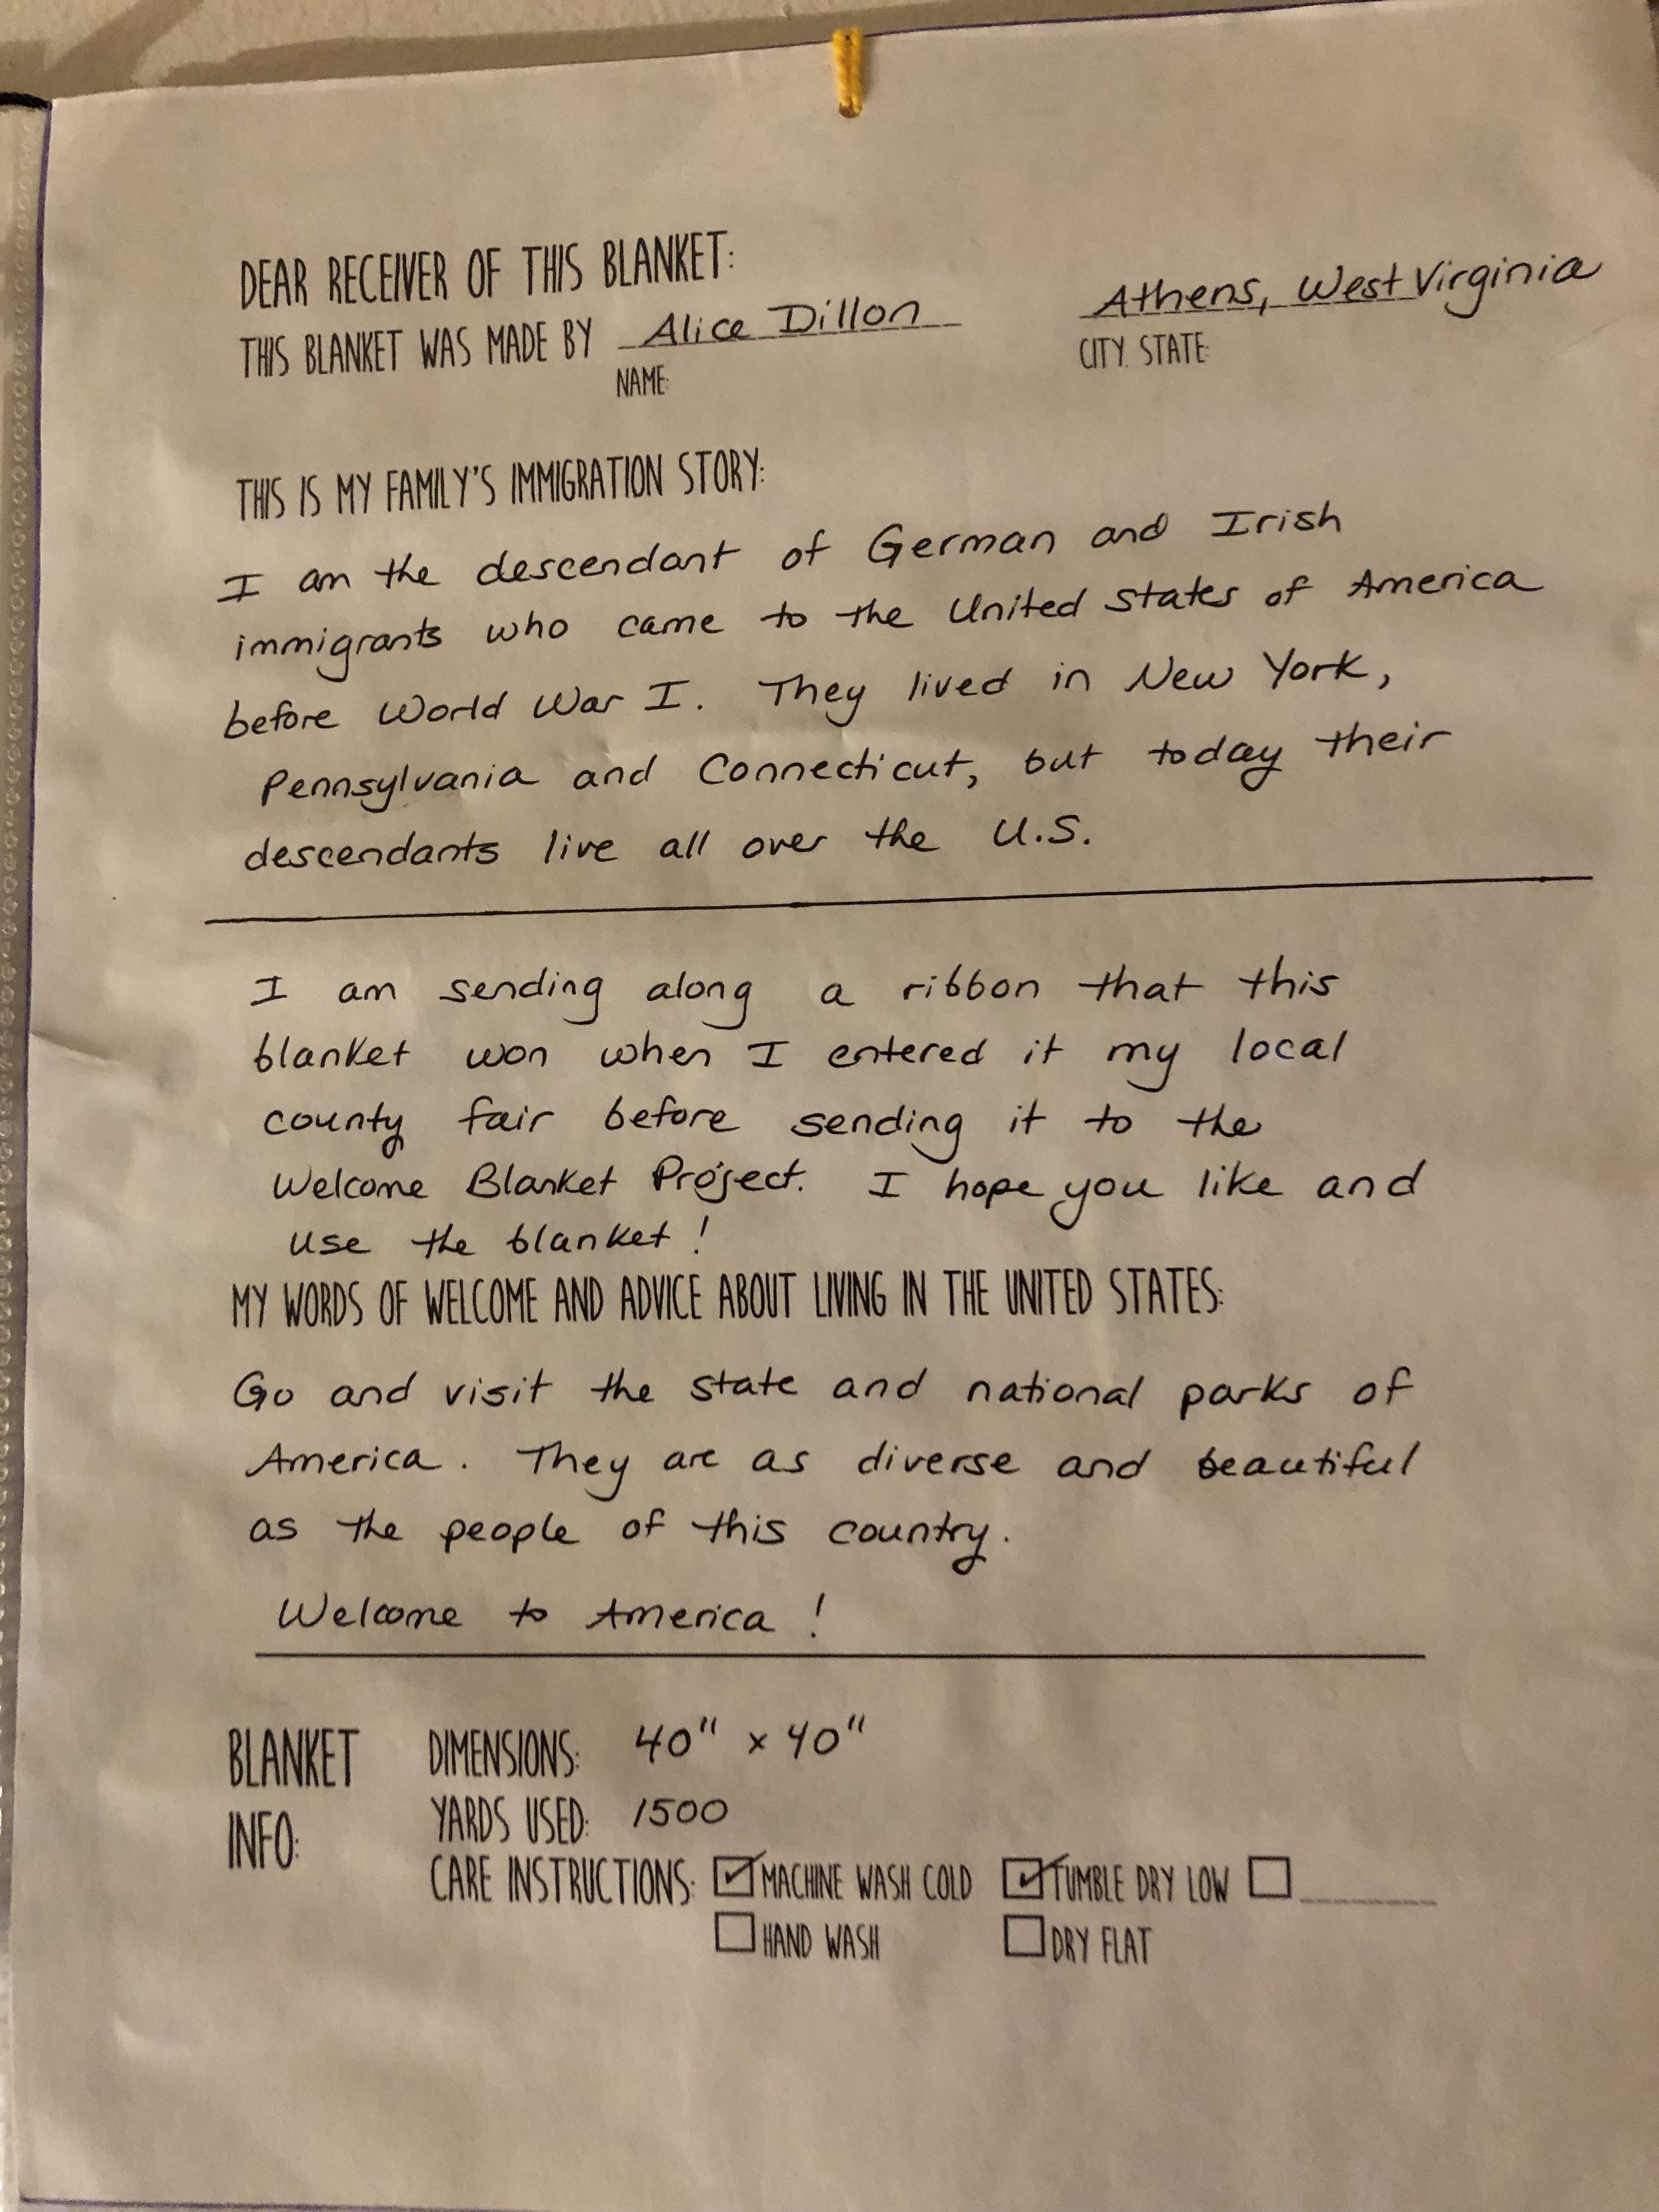 DEAR RECEIVER OF THIS BLANKET:
THIS BLANKET WAS MADE BY Alice Dillon Athens, West Virginia
NAME: CITY, STATE:
THIS IS MY FAMILY'S IMMIGRATION STORY:
I am the descendant of German and Irish
immigrants who came to the United States of America
before World War I. They lived in New York,
Pennsylvania and Connecticut, but today their
descendants live all over the U.S.
I am sending along a ribbon that this
blanket won when I entered it my local
county fair before sending it to the
Welcome Blanket Project. I hope you like and
use the blanket!
MY WORDS OF WELCOME AND ADVICE ABOUT LIVING IN THE UNITED STATES:
Go and visit the state and national parks of
America. They are as diverse and beautiful
as the people of this country.
Welcome to America!
BLANKET DIMENSIONS: 40" x 40"
INFO: YARDS USED: 1500
CARE INSTRUCTIONS: MACHINE WASH COLD TUMBLE DRY LOW
HAND WASH DRY FLAT